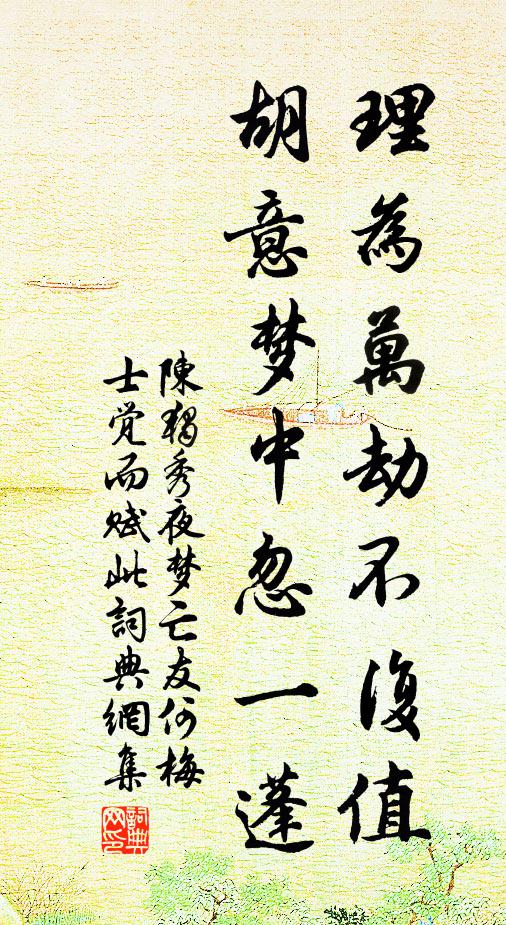 理為萬劫不復值
胡意梦中忽一蓬
陳獨秀夜梦亡友何梅
士觉而赋此詞典網集
詞典
网印